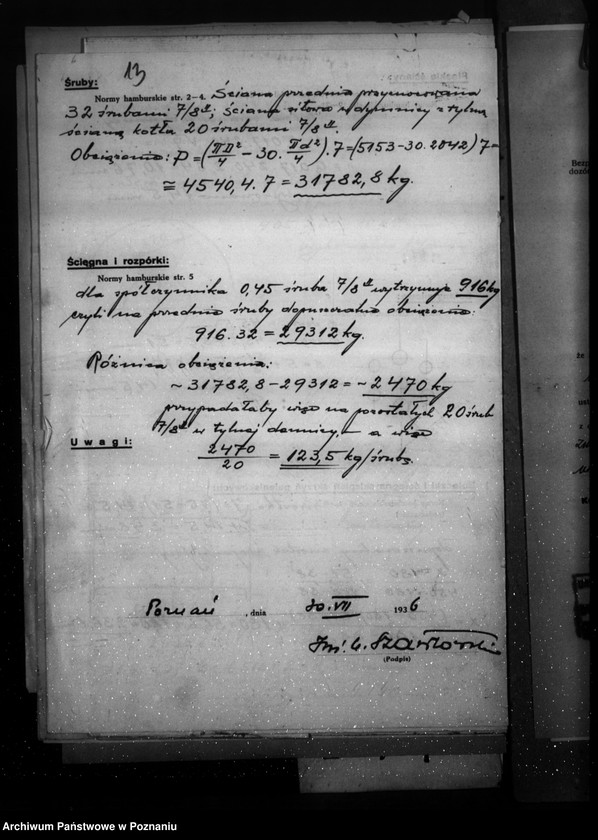 13
Śruby:
Normy hamburskie str. 2-4. Ściana przednia przymocowana
32 śrubami 7/8"; ściana sitowa w dymnicy z tylną
ścianą kotła 20 śrubami 7/8".
Obciążenie: P = (πD²/4 − 30. πd²/4).7 = (5153−30.2042) 7=
≅ 4540,4.7 = 31782,8 kg.
Ścięgna i rozpórki:
Normy hamburskie str. 5
dla spółczynnika 0,45 śruba 7/8" wytrzymuje 916 kg
czyli na przednie śruby dopuszczalne obciążenie:
916.32 = 29312 kg.
Różnica obciążenia:
~ 31782,8 − 29312 = ~ 2470 kg
przypadałaby więc na pozostałych 20 śrub
7/8" w tylnej dennicy, – a więc
Uwagi:
2470/20 = 123,5 kg/śrubę.
Poznań, dnia 30.VII 1936
Inż.
(Podpis)
Bezp
dozó
że
Archiwum Państwowe w Poznaniu